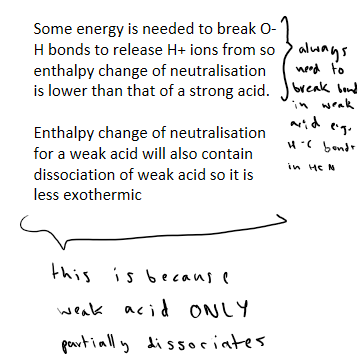 Some energy is needed to break O-
H bonds to release H+ ions from so
enthalpy change of neutralisation
is lower than that of a strong acid.
always
need to
break bond
in weak
acid e.g.
H-C bonds
in HCN
Enthalpy change of neutralisation
for a weak acid will also contain
dissociation of weak acid so it is
less exothermic
this is because
weak acid ONLY
partially dissociates